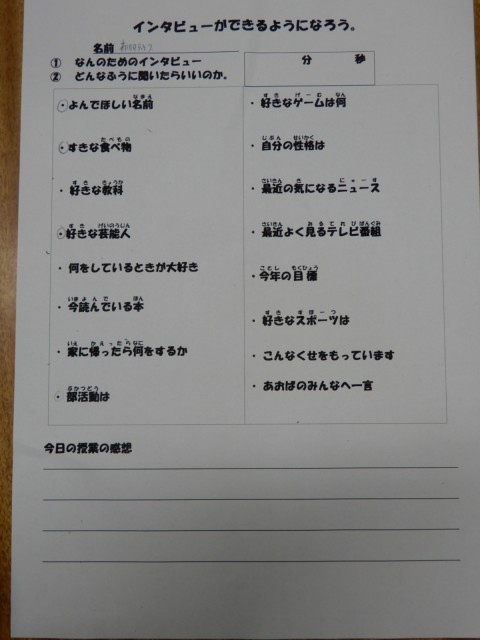 インタビューができるようになろう。
名前
① なんのためのインタビュー
② どんなふうに聞いたらいいのか。
分 秒
・よんでほしい名前
・すきな食べ物
・好きな教科
・好きな芸能人
・何をしているときが大好き
・今読んでいる本
・家に帰ったら何をするか
・部活動は
・好きなゲームは何
・自分の性格は
・最近の気になるニュース
・最近よく見るテレビ番組
・今年の目標
・好きなスポーツは
・こんなくせをもっています
・あおばのみんなへ一言
今日の授業の感想